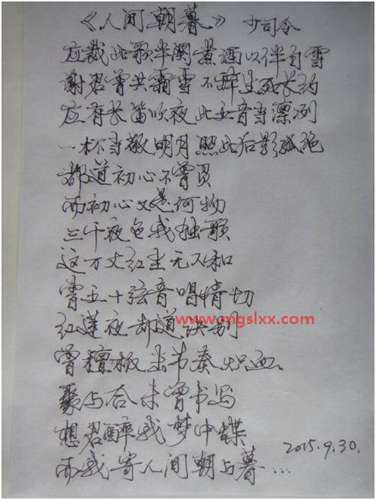 《人间朝暮》 少司命
应截此歌半阕煮酒以伴白雪
谢君曾共霜雪不醉生死长约
应有长笛吹夜此去音当凛冽
一杯当敬明月照此后影孤绝
都道初心不曾灭
而初心又是何物
三千夜色我独歌
这万丈红尘无人和
曾五十弦音唱情切
红莲夜却道决别
曾檀板来节奏炽血
聚与合未曾书写
想君醉我梦中蝶
而我寄人间朝与暮...
2015.9.30.
www.cngslxx.com